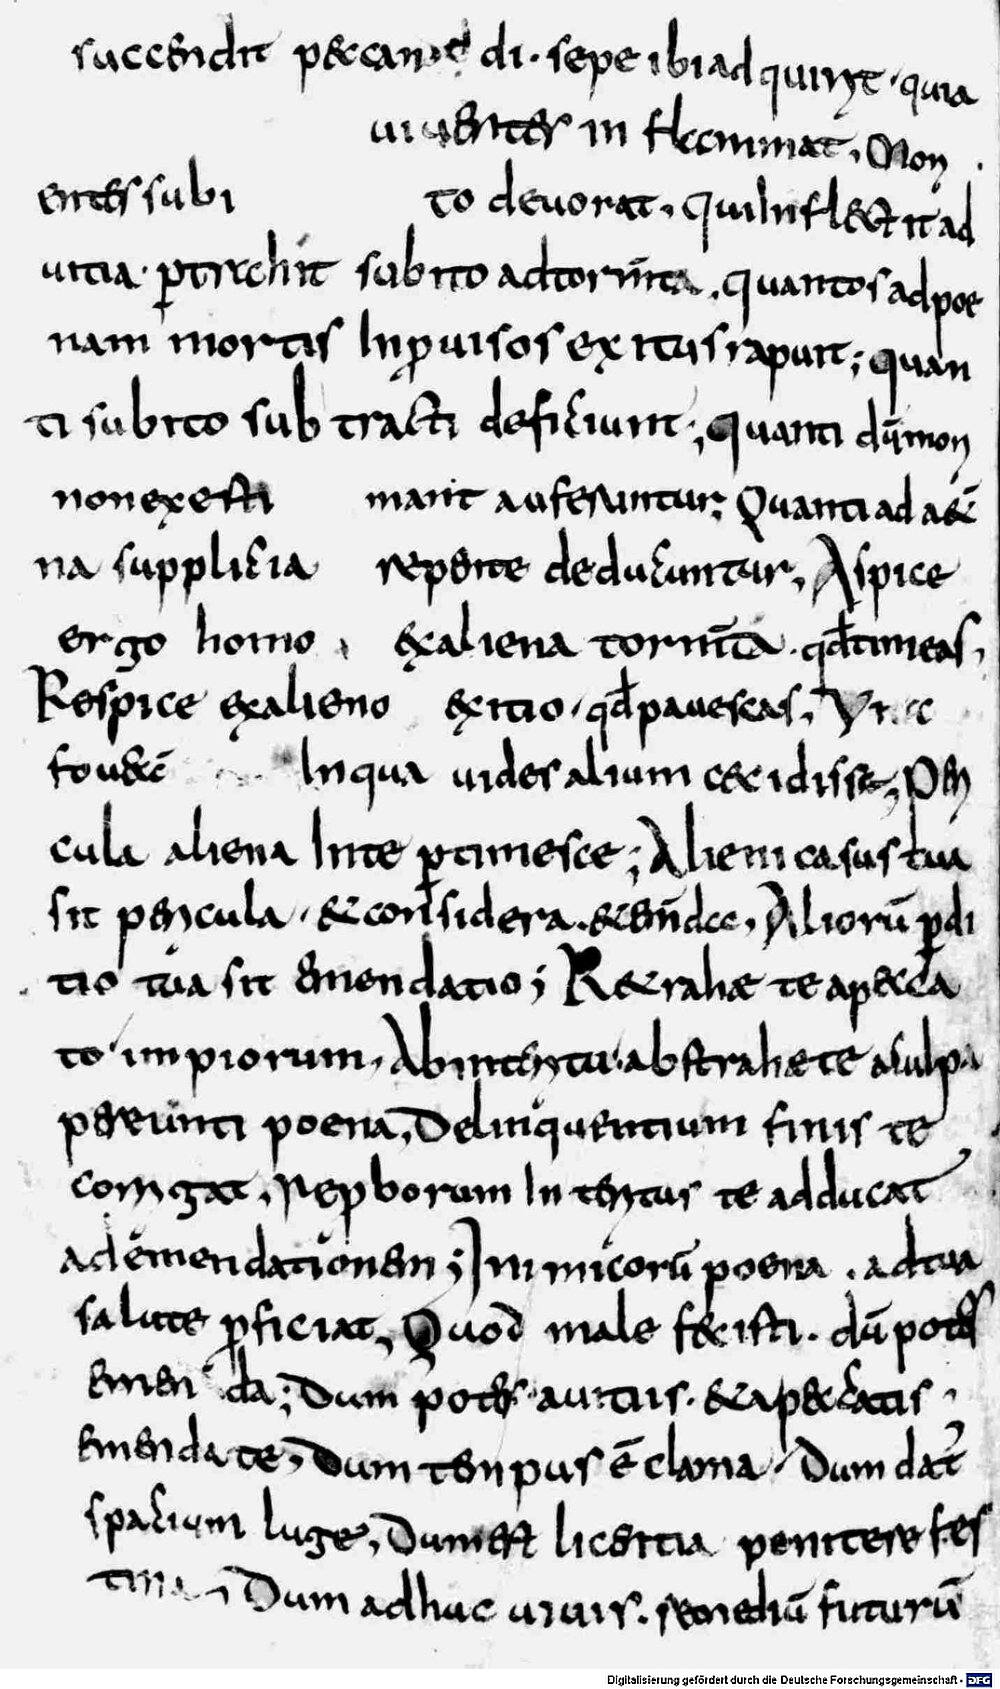 succendit peccantē di. sepe ibi adquirit, quia
uiuentes in flammat, Mori
entes subito deuorat, qui inflectit ad
uitia. ꝑtrahit subito ad torm̄ta, quantos ad poe
nam mortis Inꝓuisos exitus rapuit; quan
ti subito subtracti deficiunt; quanti dū mori
non exestimant auferuntur; Quanti ad aet̄
na supplicia repente deducuntur, Aspice
ergo homo, ex aliena torm̄ta. qđ timeas,
Respice ex alieno exitio, qđ pauescas, Vita
foueā In qua uides alium cecidisse, Peri
cula aliena In te ꝑtimesce; Alieni casus tua
sit pericula, & considera. & em̄da, Aliorū ꝑdi
tio tua sit emendatio; Retrahæ te a pecca
to impiorum, Ab interitu abstrahæ te a culpa
pereunti poena, Delinquentium finis te
corrigat, Reproborum Interitus te adducat
ad emendationem; Inimicorū poena. ad tua
salute ꝓficiat, Quod male fecisti. dū potes
emenda; Dum potes. a uitiis. & a peccatis
emenda te, Dum tempus ē clama, Dum dat̄
spacium luge, Dum est licentia penitere fes
tina, Dum adhuc uiuis. remediū futurū
Digitalisierung gefördert durch die Deutsche Forschungsgemeinschaft - DFG